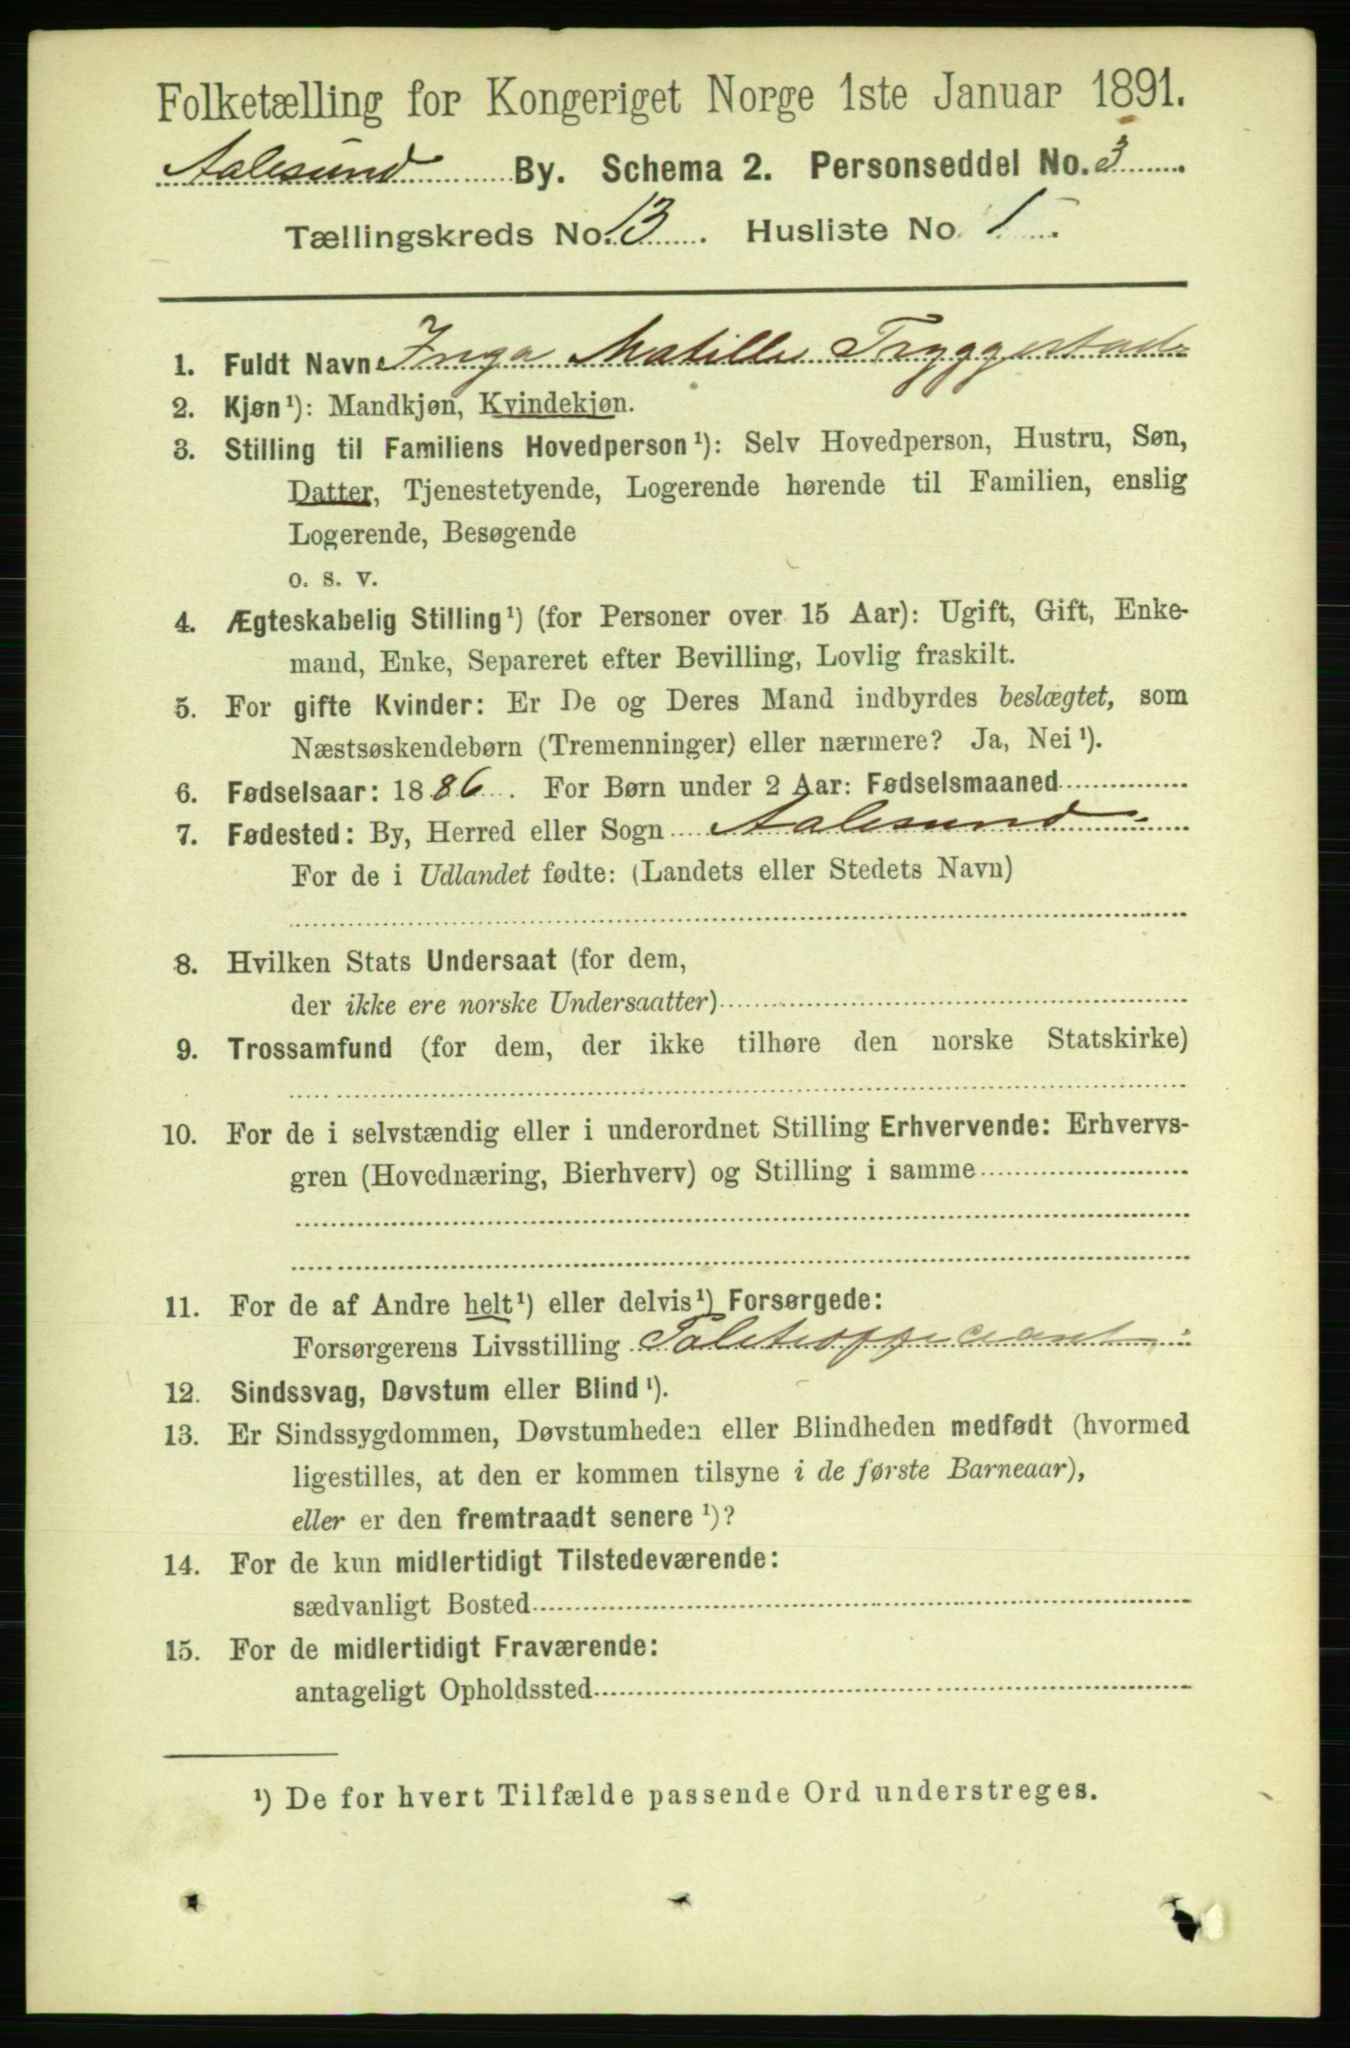 Folketælling for Kongeriget Norge 1ste Januar 1891.
Aalesund By. Schema 2. Personseddel No. 3
Tællingskreds No. 13. Husliste No 1.
1. Fuldt Navn Inga Matille Tryggestad
2. Kjøn¹): Mandkjøn, Kvindekjøn.
3. Stilling til Familiens Hovedperson¹): Selv Hovedperson, Hustru, Søn,
Datter, Tjenestetyende, Logerende hørende til Familien, enslig
Logerende, Besøgende
o. s. v.
4. Ægteskabelig Stilling¹) (for Personer over 15 Aar): Ugift, Gift, Enke-
mand, Enke, Separeret efter Bevilling, Lovlig fraskilt.
5. For gifte Kvinder: Er De og Deres Mand indbyrdes beslægtet, som
Næstsøskendebørn (Tremenninger) eller nærmere? Ja, Nei¹).
6. Fødselsaar: 1886. For Børn under 2 Aar: Fødselsmaaned
7. Fødested: By, Herred eller Sogn Aalesund
For de i Udlandet fødte: (Landets eller Stedets Navn)
8. Hvilken Stats Undersaat (for dem,
der ikke ere norske Undersaatter)
9. Trossamfund (for dem, der ikke tilhøre den norske Statskirke)
10. For de i selvstændig eller i underordnet Stilling Erhvervende: Erhvervs-
gren (Hovednæring, Bierhverv) og Stilling i samme
11. For de af Andre helt¹) eller delvis¹) Forsørgede:
Forsørgerens Livsstilling Politiofficiant
12. Sindssvag, Døvstum eller Blind¹).
13. Er Sindssygdommen, Døvstumheden eller Blindheden medfødt (hvormed
ligestilles, at den er kommen tilsyne i de første Barneaar),
eller er den fremtraadt senere¹)?
14. For de kun midlertidigt Tilstedeværende:
sædvanligt Bosted
15. For de midlertidigt Fraværende:
antageligt Opholdssted
¹) De for hvert Tilfælde passende Ord understreges.